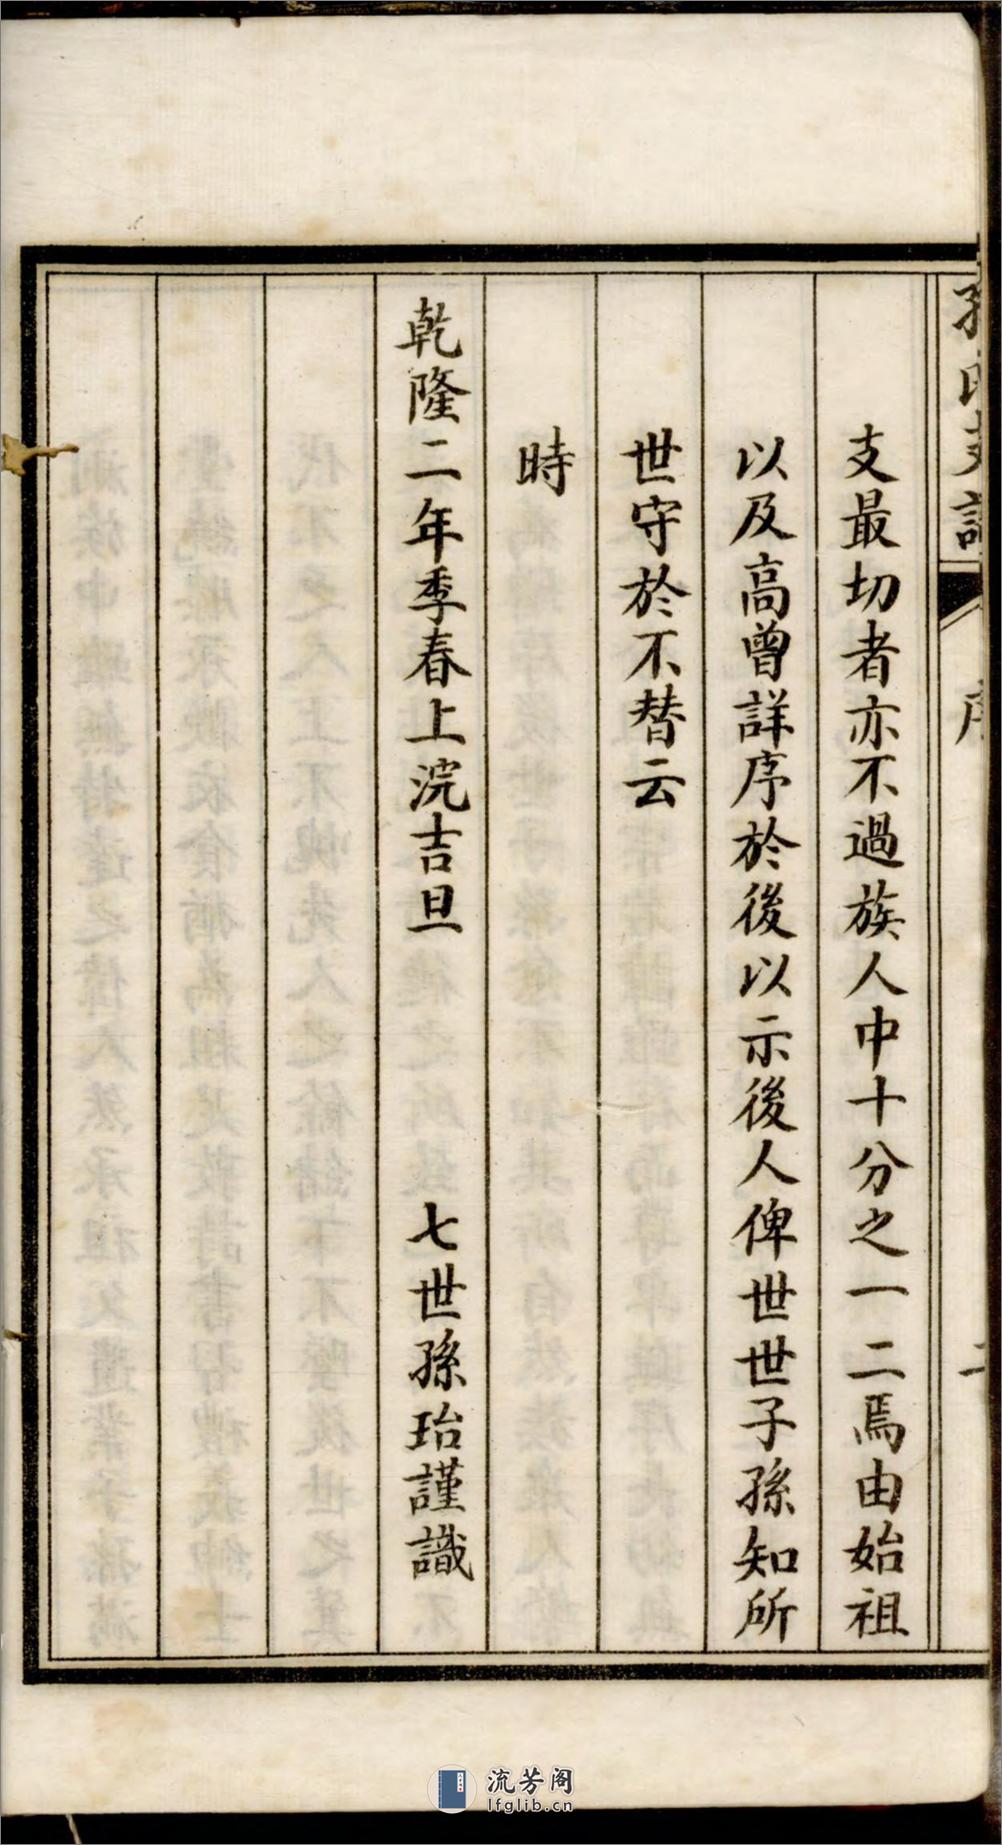 孫氏支譜
序
二
支最切者亦不過族人中十分之一二焉由始祖
以及高曾詳序於後以示後人俾世世子孫知所
世守於不替云
時
乾隆二年季春上浣吉旦 七世孫珆謹識
流芳阁
lfglib.cn